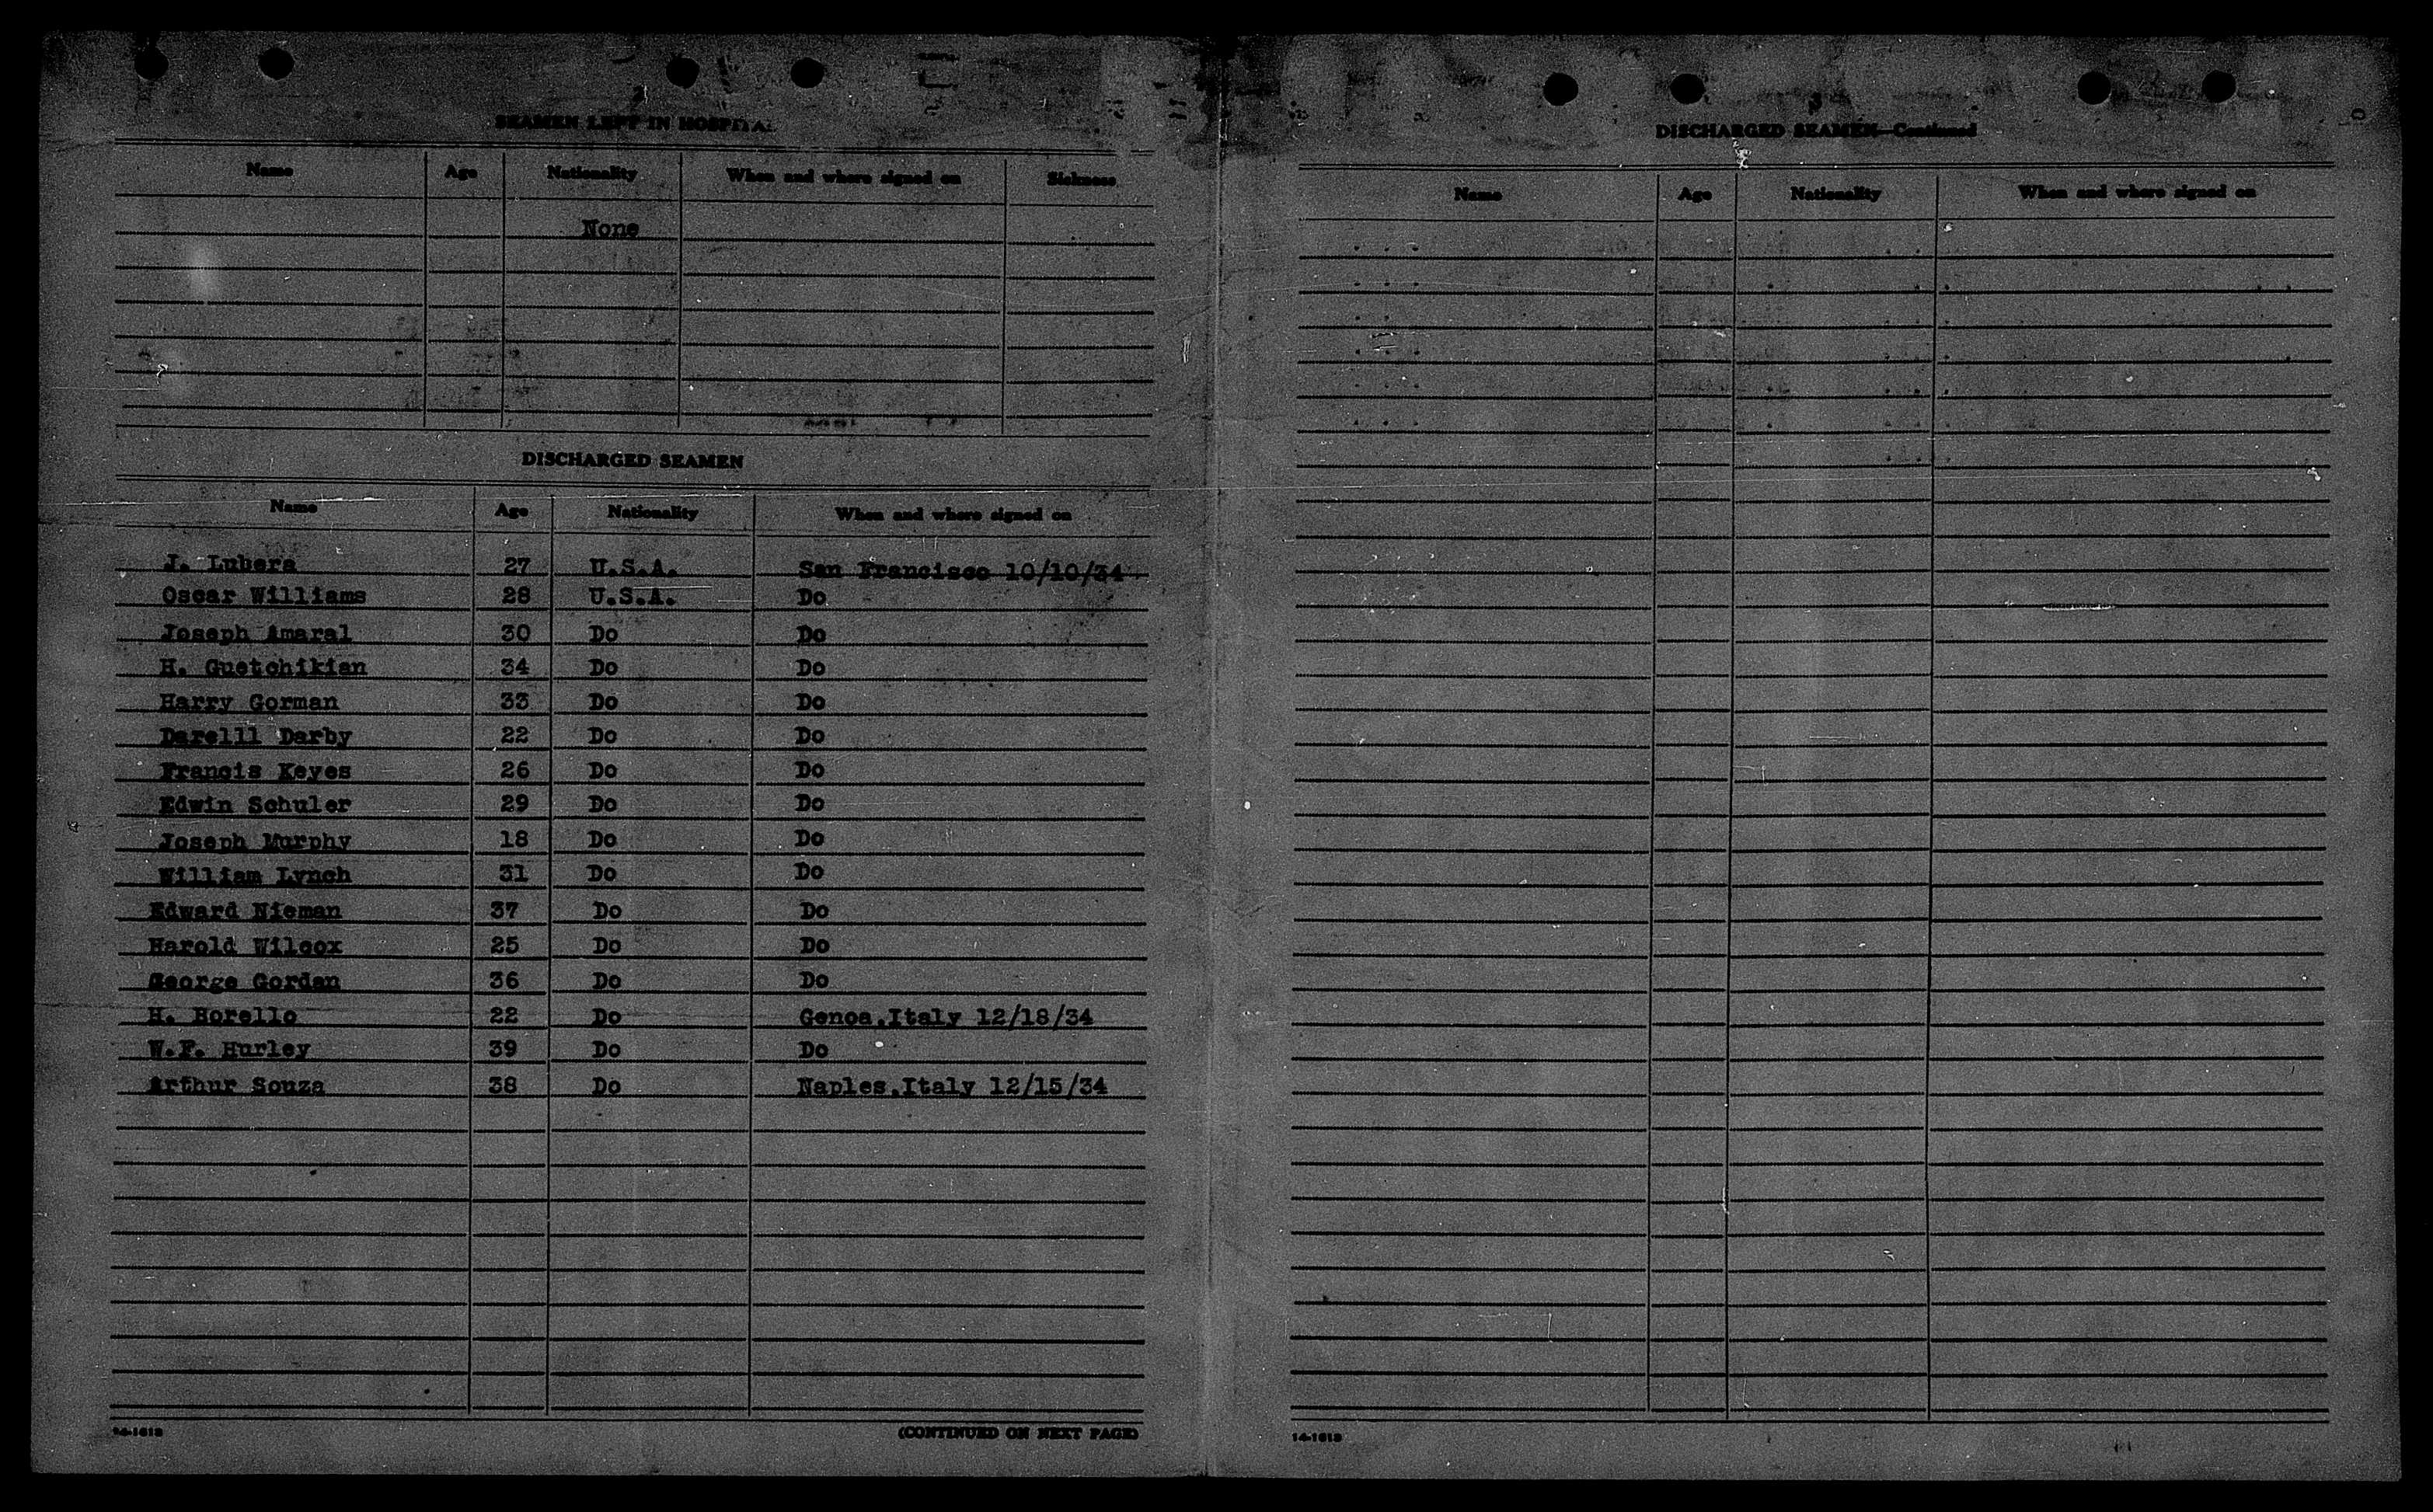 2
SEAMEN LEFT IN HOSPITAL
Name Age Nationality When and where signed on Sickness
None
DISCHARGED SEAMEN
Name Age Nationality When and where signed on
J. Lubera 27 U.S.A. San Francisco 10/10/34
Oscar Williams 28 U.S.A. Do
Joseph Amaral 30 Do Do
H. Guetchikian 34 Do Do
Harry Gorman 33 Do Do
Darelll Darby 22 Do Do
Francis Keyes 26 Do Do
Edwin Schuler 29 Do Do
Joseph Murphy 18 Do Do
William Lynch 31 Do Do
Edward Nieman 37 Do Do
Harold Wilcox 25 Do Do
George Gordan 36 Do Do
H. Borello 22 Do Genoa,Italy 12/18/34
W.F. Hurley 39 Do Do
Arthur Souza 38 Do Naples,Italy 12/15/34
14-1613 (CONTINUED ON NEXT PAGE)
3
DISCHARGED SEAMEN—Continued
Name Age Nationality When and where signed on
14-1613